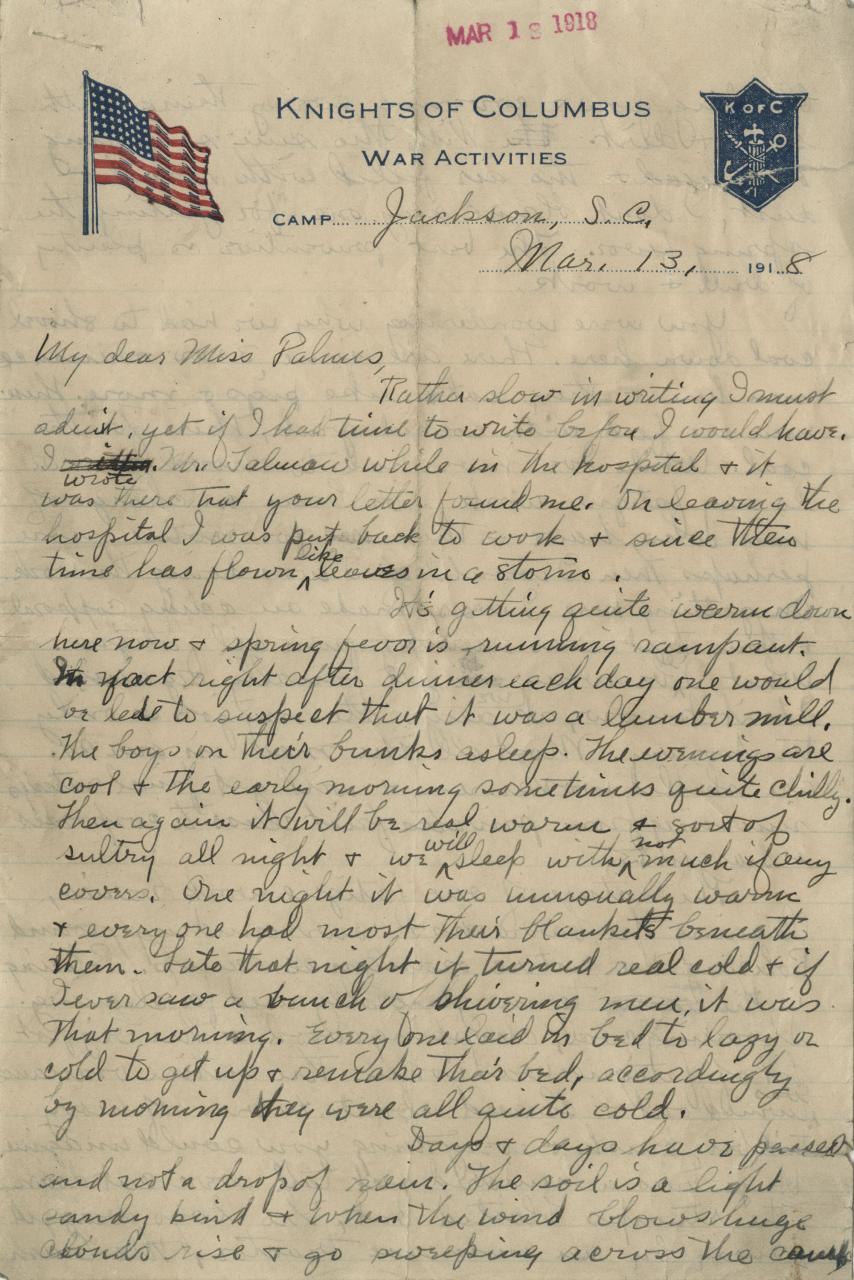 MAR 18 1918
KNIGHTS OF COLUMBUS
K OF C
WAR ACTIVITIES
CAMP Jackson, S. C.
Mar. 13, 1918
My dear Miss Palmes,
Rather slow in writing I must
admit, yet if I had time to write before I would have.
I wrote Mr. Talmau while in the hospital & it
was there that your letter found me. On leaving the
hospital I was put back to work & since then
time has flown like leaves in a storm.
It's getting quite warm down
here now & spring fever is running rampant.
In fact right after dinner each day one would
be led to suspect that it was a lumber mill.
The boys on their bunks asleep. The evenings are
cool & the early morning sometimes quite chilly.
Then again it will be real warm & sort of
sultry all night & we will sleep with not much if any
covers. One night it was unusually warm
& every one had most their blankets beneath
them. Late that night it turned real cold & if
I ever saw a bunch o shivering men, it was
that morning. Every one laid in bed to lazy or
cold to get up & remake their bed, accordingly
by morning they were all quite cold.
Days & days have passed
and not a drop of rain. The soil is a light
sandy kind & when the wind blows huge
clouds rise & go sweeping across the camp